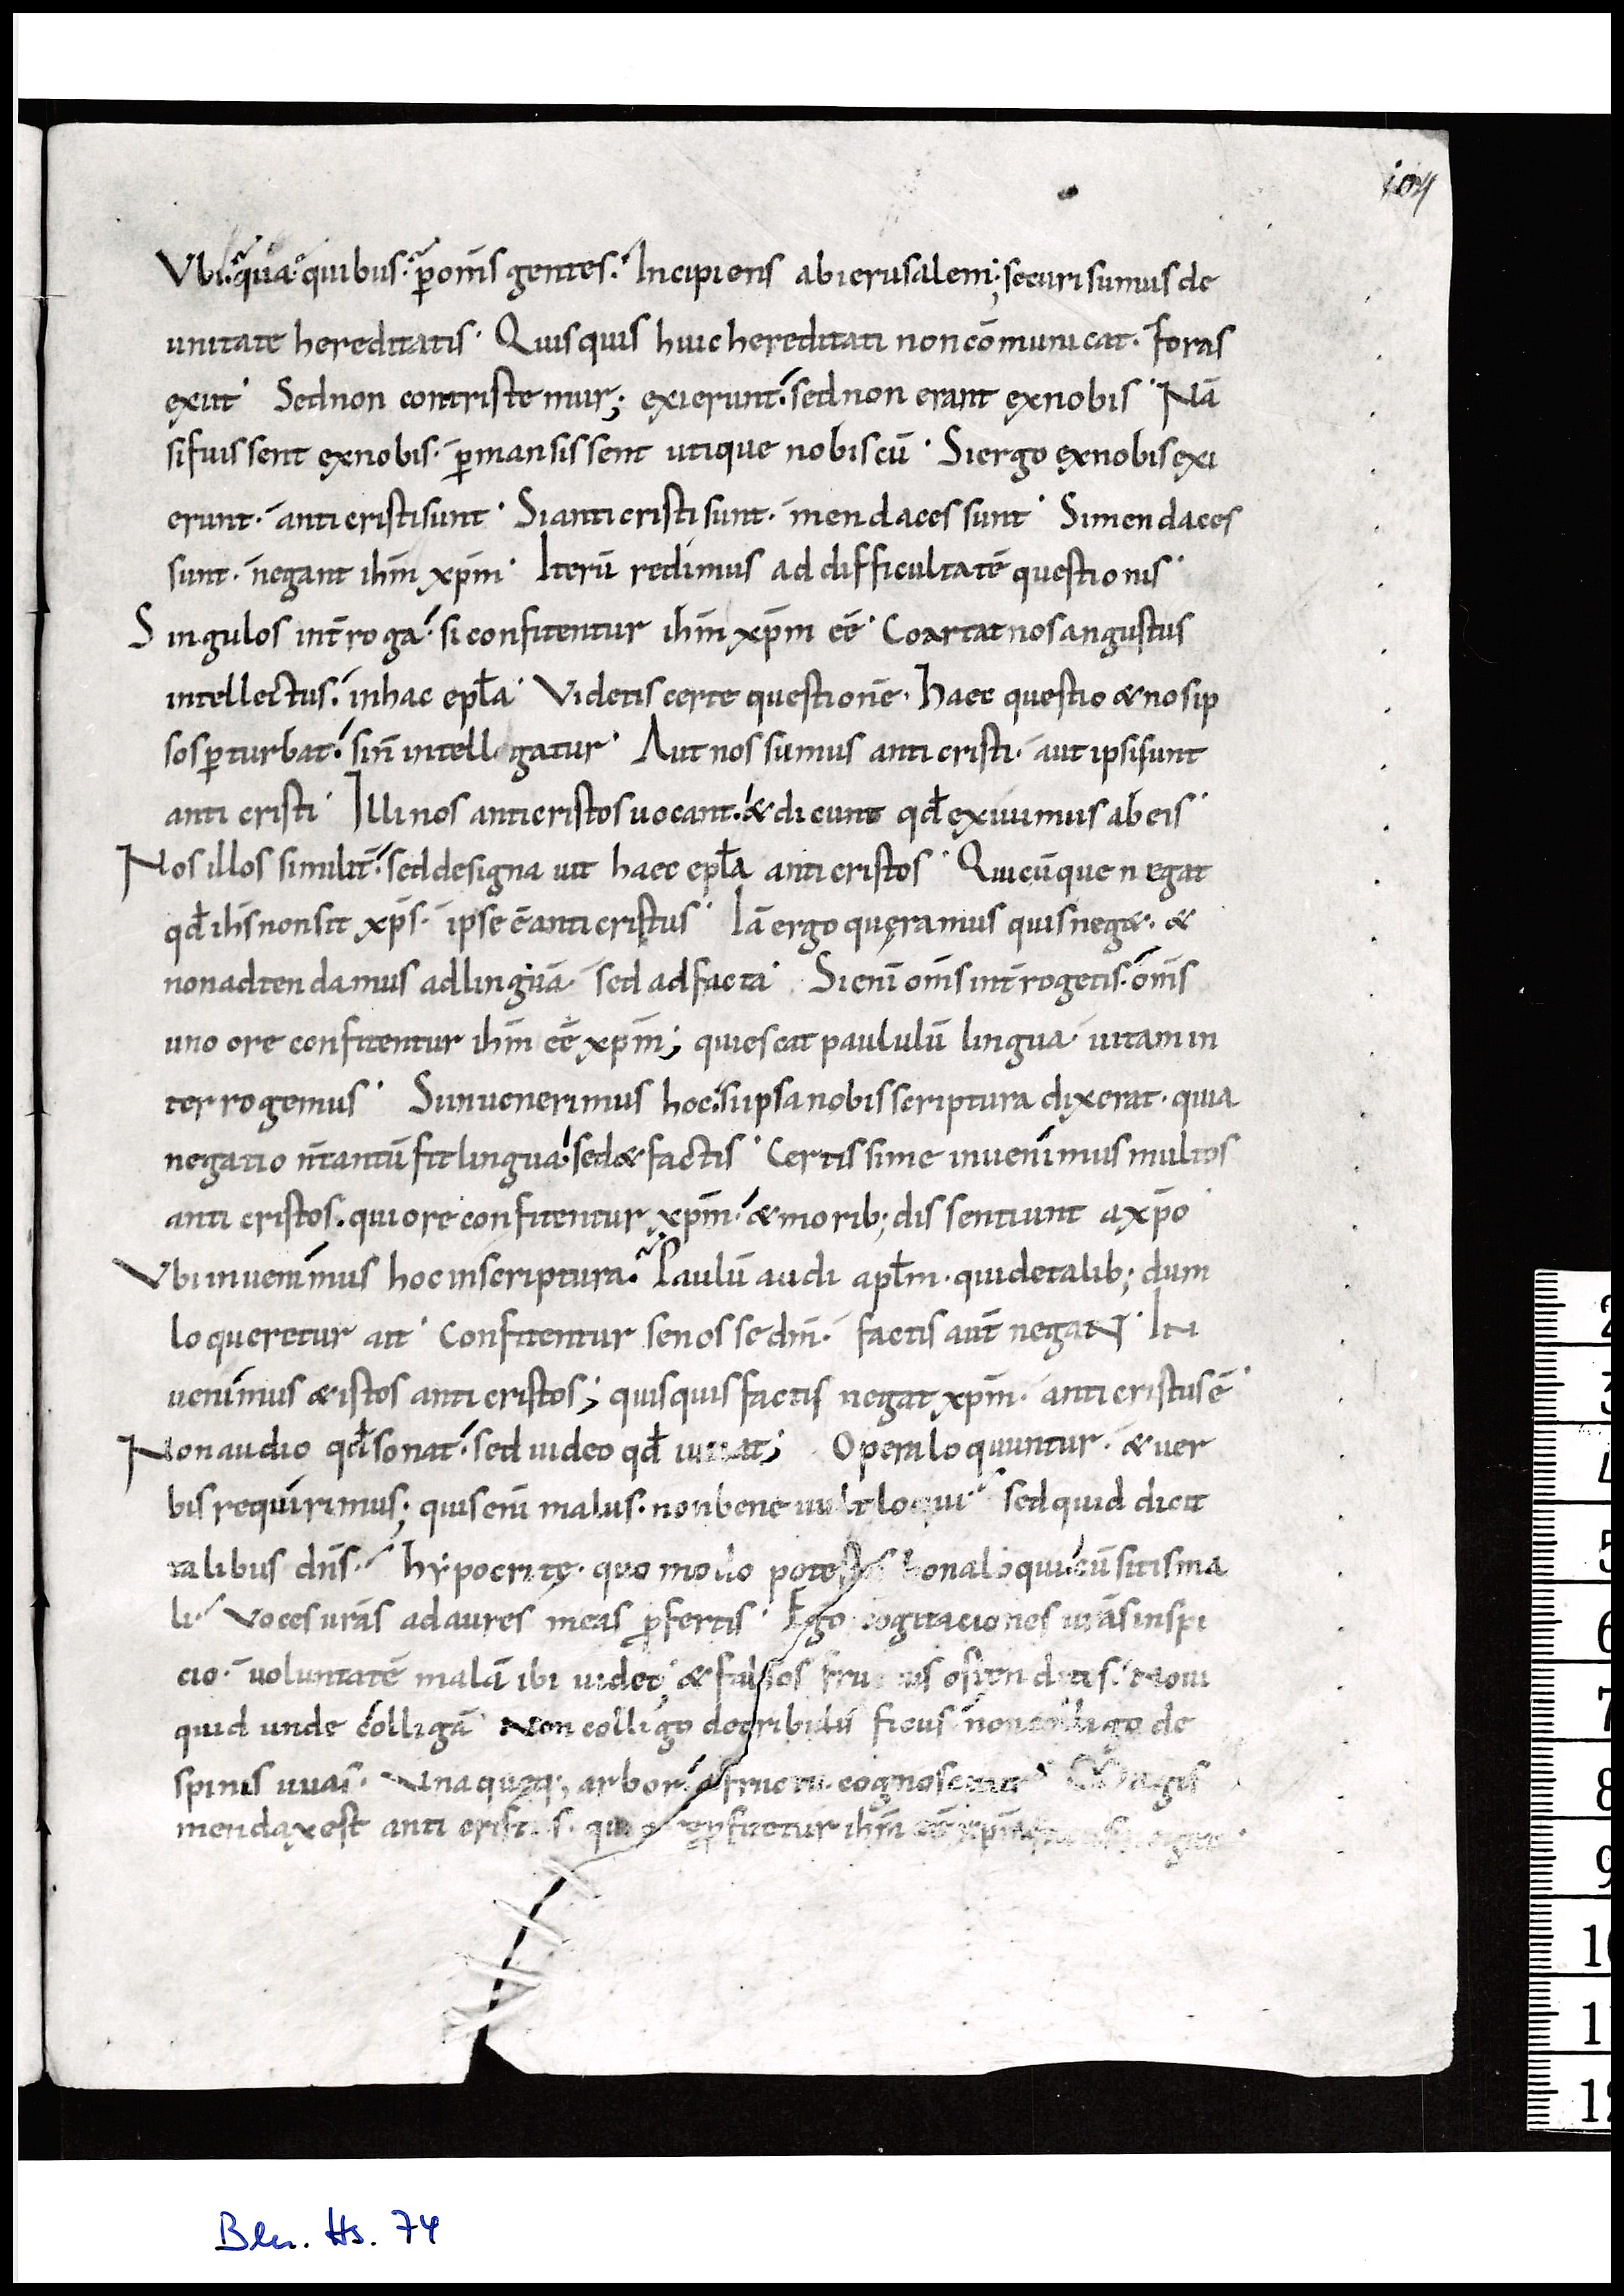 104
Vbi· qua· quibus· p̄ om̄s gentes· Incipiens ab ierusalem; securi sumus de
unitate hereditatis· Quis quis huic hereditati non cōmunicat· foras
exiit· Sed non contristemur; exierunt· sed non erant ex nobis· Nā
si fuissent ex nobis· p̄mansissent utique nobis cū· Si ergo ex nobis exi
erunt· anti cristi sunt· Si anti cristi sunt· mendaces sunt· Si mendaces
sunt· negant ih̄m xp̄m· Iterū redimus ad difficultatē questionis·
Singulos int̄roga· si confitentur ih̄m xp̄m eē· Coartat nos angustus
intellectus· in hac ep̄la· Videtis certe questionē· haec questio & nos ip
sos p̄turbat· si n̄ intellegatur· Aut nos sumus anti cristi· aut ipsi sunt
anti cristi· Illi nos anticristos uocant· & dicunt qđ exiuimus ab eis·
Nos illos similit̄· sed designauit haec ep̄la anti cristos· Quicūque negat
qđ ih̄s non sit xp̄s· ipse ē anti cristus· Iā ergo quęramus quis neg&· &
non adtendamus ad linguā· sed ad facta· Si eni om̄s int̄rogetis· om̄s
uno ore confitentur ih̄m eē xp̄m; quiescat paululū lingua· uitam in
terrogemus· Si inuenerimus hoc· si ipsa nobis scriptura dixerat· quia
negatio n̄ tantū fit lingua· sed & factis· Certissime inuenimus multos
anti cristos· qui ore confitentur xp̄m· & morib; dissentiunt a xp̄o
Vbi inuenimus hoc in scriptura· Paulū audi ap̄lm· qui de talib; dum
loqueretur ait· Confitentur se nosse dm̄· factis aut̄ negaNT· IN
uenimus & istos anti cristos; quisquis factis negat xp̄m· anti cristus ē·
Non audio qđ sonat· sed uideo qđ uiuat; Opera loquuntur· & uer
bis requirimus; quis eni malus· non bene uult loqui· sed quid dicit
talibus dn̄s· hypocritę· quo modo potestis bona loqui· cū sitis ma
li· Voces ur̄as ad aures meas p̄fertis· Ego cogitaciones ur̄as inspi
cio· uoluntatē malā ibi uideo; & falsos fructus ostenditis· Noui
quid unde colligā· Non colligo de tribulū ficus· non colligo de
spinis uuas· Vna quęq; arbor· a fructu cognoscitur· Magis
mendax est anti cristus· qui ore p̄fitetur ih̄m eē xp̄m
Bln. Hs. 74
2
3
4
5
6
7
8
9